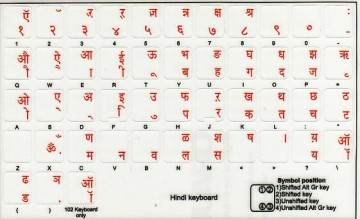 ऍ ॅ र् र् ज्ञ त्र क्ष श्र
१ २ ३ ४ ५ ६ ७ ८ ९ ० -
1 2 3 4 5 6 7 8 9 0 -
औ ऐ आ ई ऊ भ ङ घ ध झ
ौ ै ा ी ू ब ह ग द ज
Q W E R T Y U I O P
ओ ए अ इ उ फ ऱ ख थ छ ठ
ो े ् ि ु प र क त च ट
A S D F G H J K L
ण ळ श ष । य़ ऑ
ॐ म न व ल स , . य
Z X C V B N M
ढ ञ ऑ
ड
102 Keyboard
only
Hindi keyboard
Symbol position
1)Shifted Alt Gr key
2)Shifted key
3)Unshifted key
4)Unshifted Alt Gr key